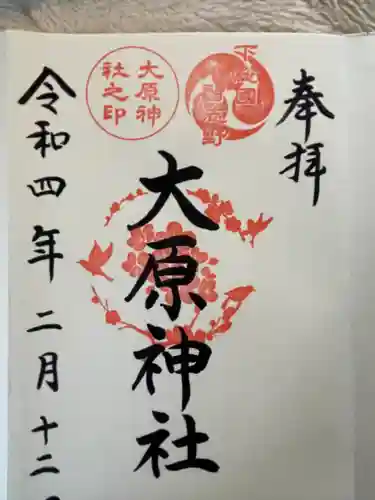 奉拝
下総國
習志野
大原神社
大原神
社之印
令和四年二月十二